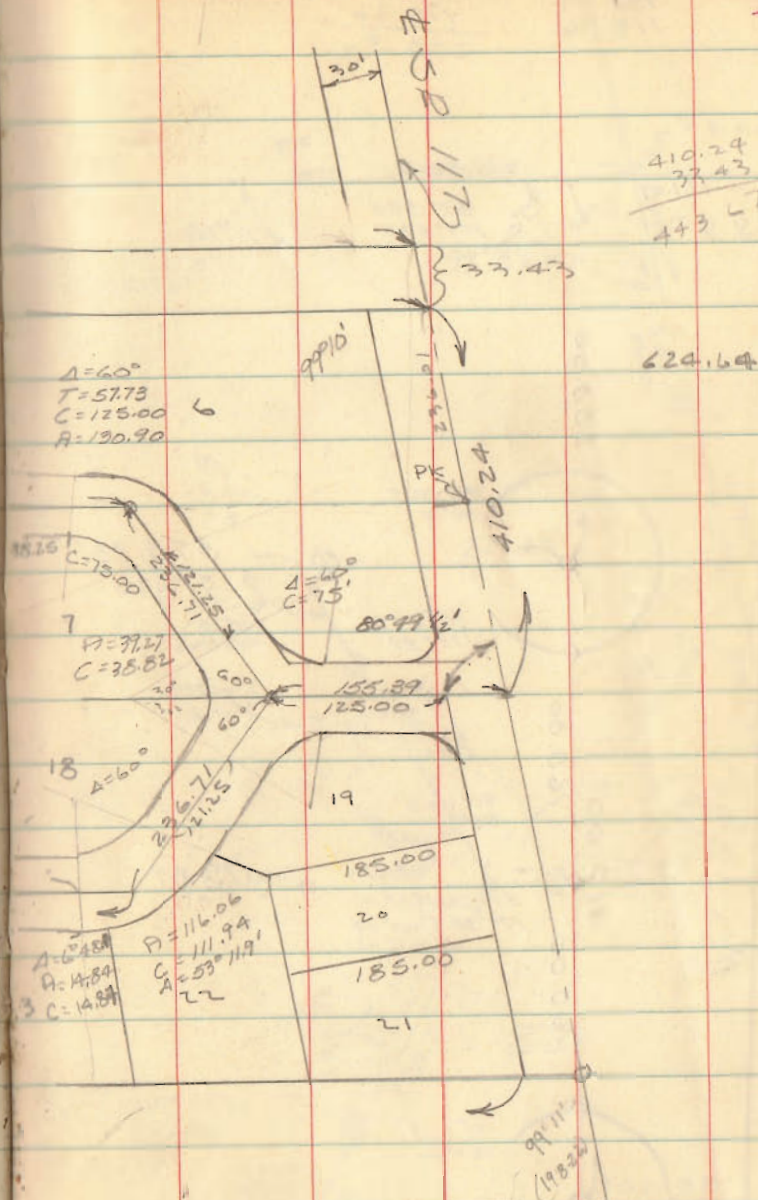 30'
SR 1175
410.24
33.43
443.6
33.43
99°10'
624.64
Δ=60°
T=57.73
C=125.00
A=130.90
6
PK
410.24
38.25
C=75.00
121.25
236.71
Δ=60°
C=75'
80°49 1/2'
7
A=39.27
C=38.82
60°
60°
155.39
125.00
18
Δ=60°
236.71
121.25
19
185.00
20
A=116.06
C=111.94
Δ=53°11.9'
22
185.00
A=14.84
C=14.84
3
21
99°11'
(198-22)